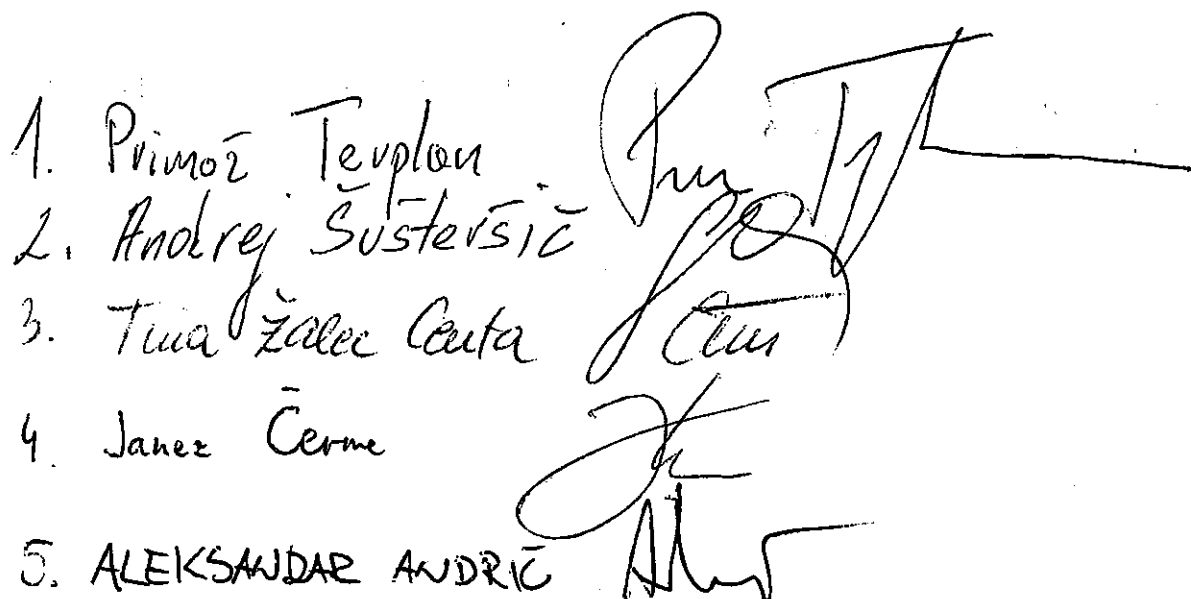 1. Primož Terplan
2. Andrej Šušteršič
3. Tina Žalec Centa
4. Janez Čerme
5. ALEKSANDAR ANDRIČ